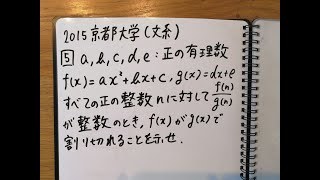 2015 京都大学(文系)
5 a, b, c, d, e : 正の有理数
f(x)=ax²+bx+c, g(x)=dx+e
すべての正の整数nに対してf(n)/g(n)
が整数のとき, f(x)がg(x)で
割り切れることを示せ.